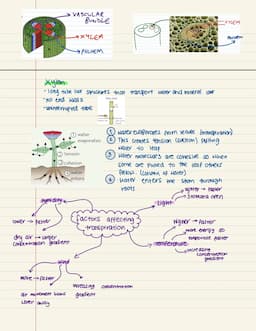 VASCULAR
BUNDLE
XYLEM
PHLOEM
XYLEM
PHLOEM
Xylem:
- long tube like structures that transport water and mineral ions
- no end walls
- uninterrupted tube
① water evaporation
② tension
③ cohesion
④ water enters
① Water evaporates from leaves (transpiration)
② This creates tension (suction) pulling water to leaf
③ Water molecules are cohesive so when some are pulled to the leaf others follow. (column of water)
④ Water enters the stem through roots
factors affecting transpiration
light
lighter → faster
stomata open
temperature
higher → faster
more energy so evaporate faster
increasing concentration gradient
wind
more → faster
air movement blows
away
increasing concentration gradient
humidity
lower → faster
dry air → larger concentration gradient